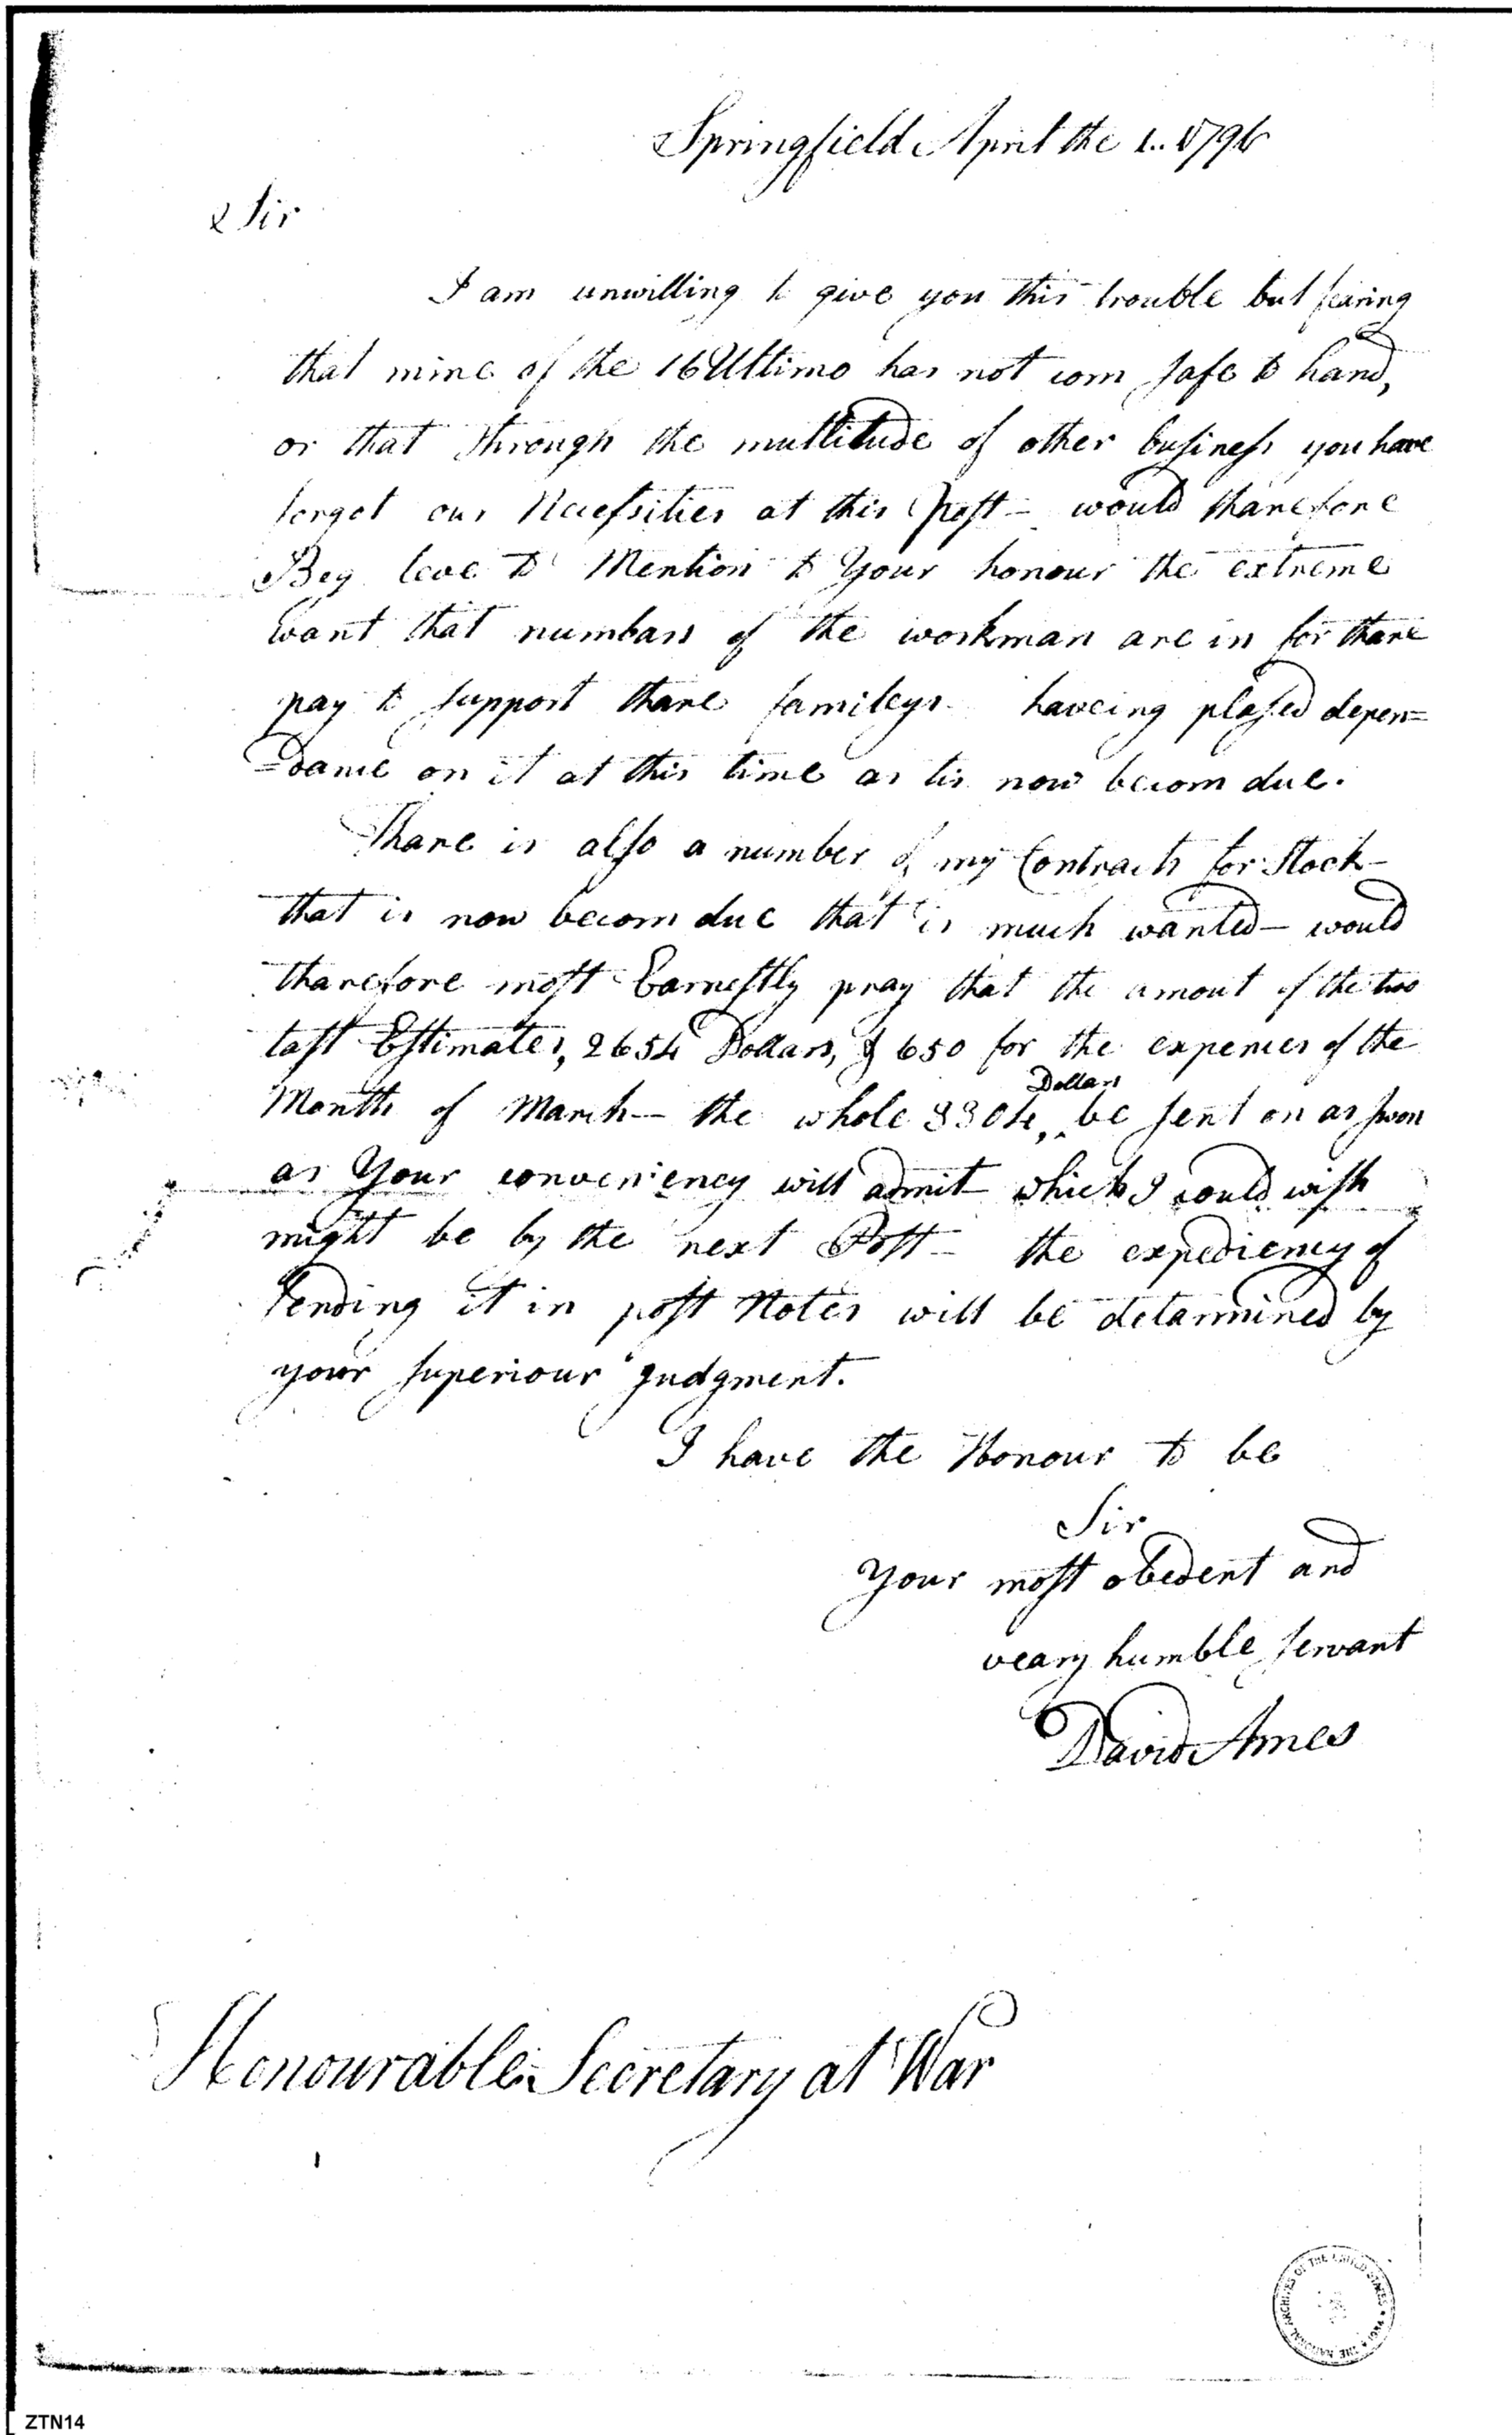 Springfield April the 1.. 1796
Sir
I am unwilling to give you this trouble but fearing
that mine of the 16 Ultimo has not com safe to hand,
or that through the multitude of other business you have
forgot our Necessities at this post – would tharefore
Beg leve to Mention to Your honour the extreme
want that numbars of the workman are in for thare
pay to support thare famileys – haveing plased depen=
=dance on it at this time as tis now becom due.
Thare is also a number of my Contracts for Stock –
that is now becom due that is much wanted – would
tharefore most Earnestly pray that the amout of the two
last Estimates, 2654 Dollars, & 650 for the expences of the
Month of March – the whole 3304, Dollars be sent on as swon
as Your conveniency will admit which I could wish
might be by the next Post – the expediency of
sending it in post Notes will be detarmined by
your superiour judgment.
I have the Honour to be
Sir
Your most obedent and
veary humble servant
David Ames
Honourable Secretary at War
THE NATIONAL ARCHIVES OF THE UNITED STATES
ZTN14